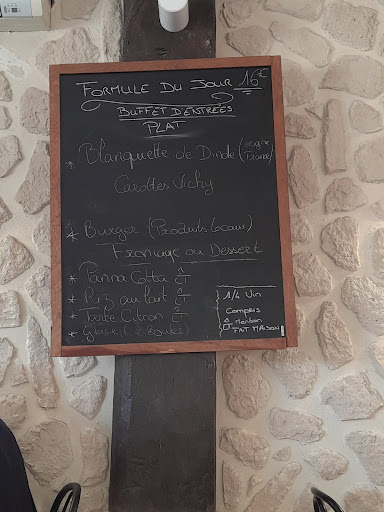 FORMULE DU JOUR 16€
BUFFET D'ENTRÉES
PLAT
* Blanquette de Dinde (origine France)
Carottes Vichy
* Burger (Produits locaux)
Fromage ou Dessert
* Panna Cotta
* Riz au lait
* Tarte Citron
* Glace (2 Boules)
1/4 Vin
Compris
Mention
FAIT MAISON